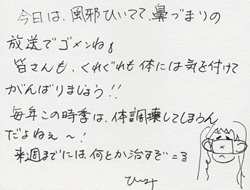 今日は、風邪ひいてて、鼻づまりの
放送でゴメンね!
皆さんも、くれぐれも体には気を付けて
がんばりましょう!!
毎年この時季は、体調壊してしまうん
だよねぇ~!
来週までには何とか治すぞ=3
ひーみ